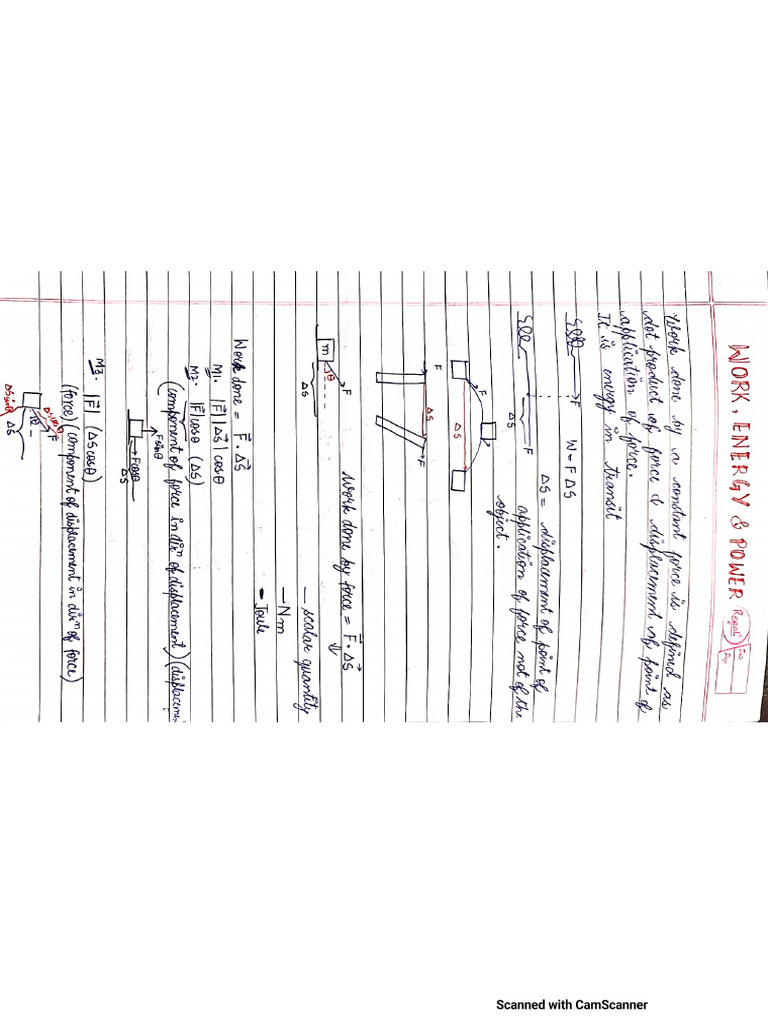 WORK, ENERGY & POWER
Work done by a constant force is defined as
dot product of force & displacement of point of
application of force.
It is energy in transit
F W = F ΔS
F ΔS = displacement of point of
ΔS application of force not of the
object.
F
ΔS
F ΔS F
Work done by force = F⃗ · ΔS⃗
m θ F
ΔS
– scalar quantity
– Nm
– Joule
Work done = F⃗ · ΔS⃗
M1. |F⃗| |ΔS⃗| cosθ
M2. |F⃗| cosθ (ΔS)
(component of force in dirⁿ of displacement) (displacem
F sinθ
F cosθ
ΔS
M3. |F⃗| (ΔS cosθ)
(force) (component of displacement in dirⁿ of force)
ΔS cosθ F
θ
ΔS sinθ ΔS
Scanned with CamScanner